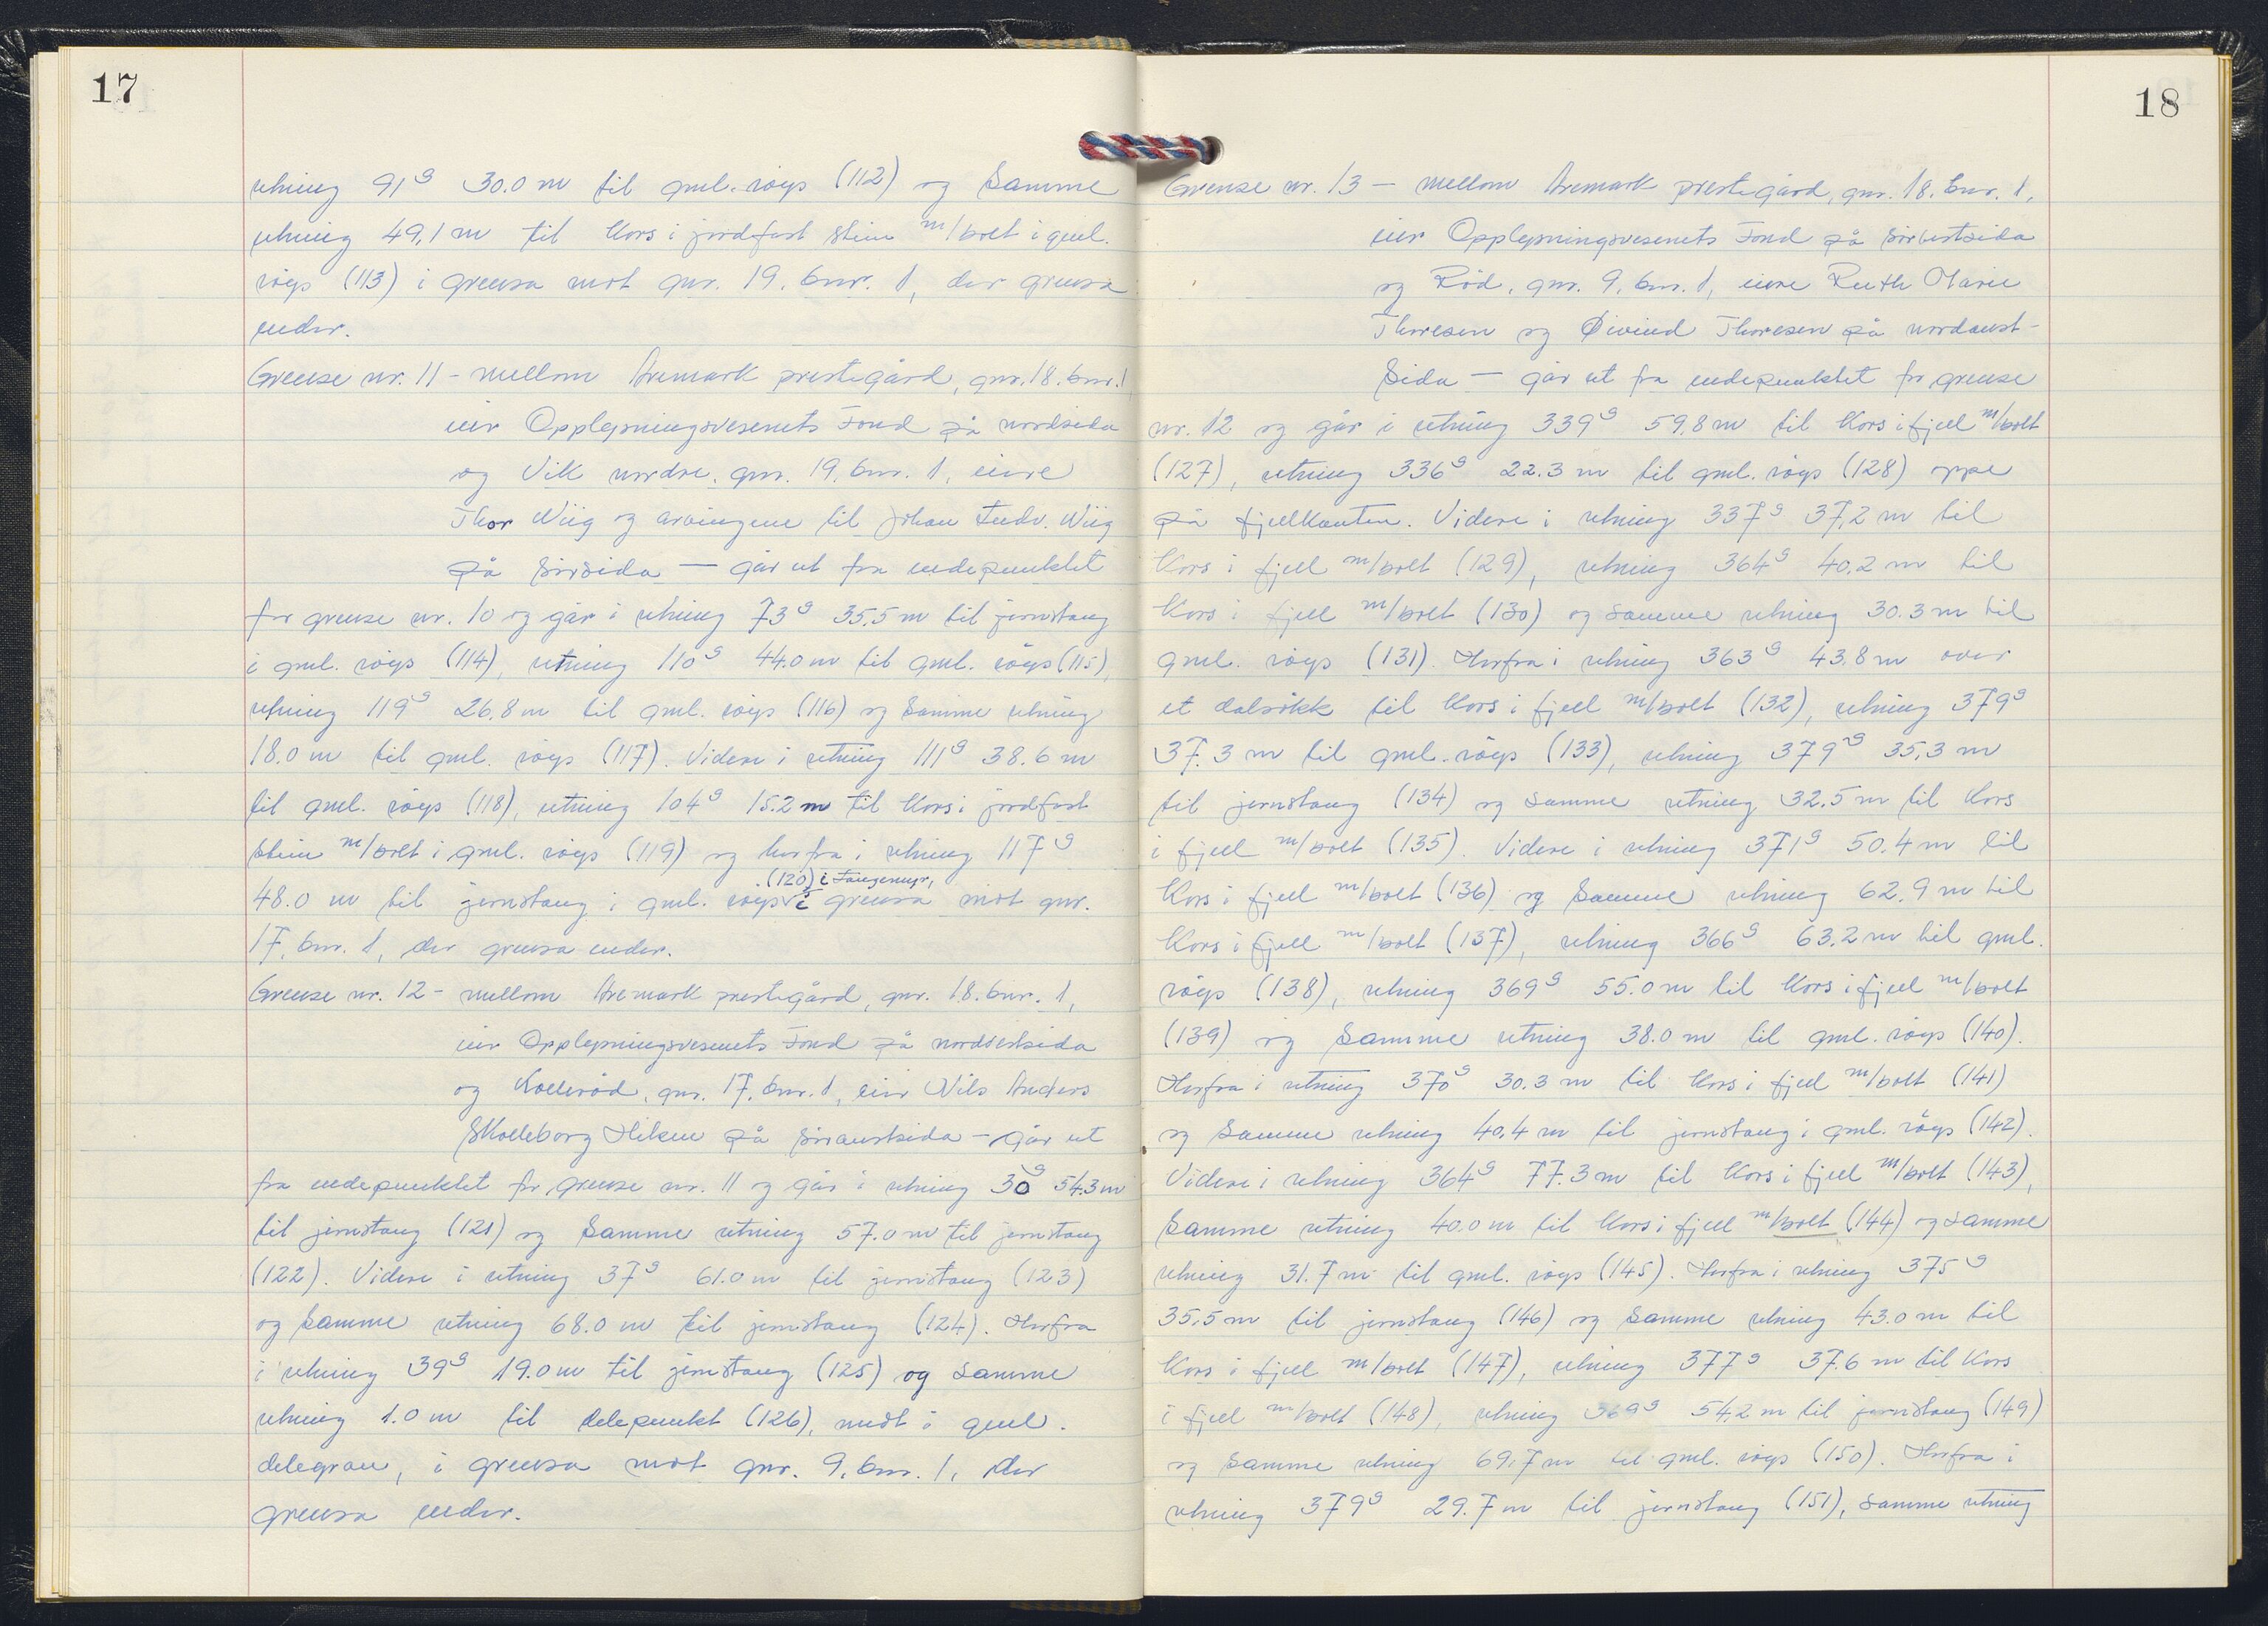 17
retning 91g 30.0 m til gml. röys (112) og samme
retning 49,1 m til kors i jordfast stein m/bolt i gml.
röys (113) i grensa mot gnr. 19, bnr. 1, der grensa
ender.
Grense nr. 11 - mellom Aremark prestegård, gnr. 18. bnr. 1
eier Opplysningsvesenets Fond på nordsida
og Vik nordre, gnr. 19, bnr. 1, eiere
Thor Wiig og arvingene til Johan Wiig
på sörsida — går ut fra endepunktet
for grense nr. 10 og går i retning 73g 35,5 m til jernstang
i gml. röys (114), retning 110g 44.0 m til gml. röys (115),
retning 119g 26,8 m til gml. röys (116) og samme retning
18.0 m til gml. röys (117). Videre i retning 111g 38.6 m
til gml. röys (118), retning 104g 15.2 m til kors i jordfast
stein m/bolt i gml. röys (119) og herfra i retning 117g
(120) i Tangemyr,
48.0 m til jernstang i gml. röys i grensa mot gnr.
17, bnr. 1, der grensa ender.
Grense nr. 12 - mellom Aremark prestegård, gnr. 18. bnr. 1,
eier Opplysningsvesenets Fond på nordvestsida
og Kolleröd, gnr. 17, bnr. 1, eier Nils Anders
Skolleborg Hilsen på söraustsida - går ut
fra endepunktet for grense nr. 11 og går i retning 30g 54.3 m
til jernstang (121) og samme retning 57.0 m til jernstang
(122). Videre i retning 37g 61.0 m til jernstang (123)
og samme retning 68.0 m til jernstang (124). Herfra
i retning 39g 19.0 m til jernstang (125) og samme
retning 1.0 m til delepunkt (126), midt i gml.
delegran, i grensa mot gnr. 9, bnr. 1, der
grensa ender.
18
Grense nr. 13 — mellom Aremark prestegård, gnr. 18. bnr. 1,
eier Opplysningsvesenets Fond på sörvestsida
og Röd, gnr. 9, bnr. 1, eiere Ruth Marie
Thoresen og Øivind Thoresen på nordaust-
sida — går ut fra endepunktet for grense
nr. 12 og går i retning 339g 59,8 m til kors i fjell m/bolt
(127), retning 336g 22.3 m til gml. röys (128) oppe
på fjellkanten. Videre i retning 337g 37,2 m til
kors i fjell m/bolt (129), retning 364g 40,2 m til
kors i fjell m/bolt (130) og samme retning 30.3 m til
gml. röys (131). Herfra i retning 363g 43.8 m over
et dalsökk til kors i fjell m/bolt (132), retning 379g
37.3 m til gml. röys (133), retning 379g 35,3 m
til jernstang (134) og samme retning 32.5 m til kors
i fjell m/bolt (135). Videre i retning 371g 50.4 m til
kors i fjell m/bolt (136) og samme retning 62.9 m til
kors i fjell m/bolt (137), retning 366g 63.2 m til gml.
röys (138), retning 369g 55.0 m til kors i fjell m/bolt
(139) og samme retning 38.0 m til gml. röys (140).
Herfra i retning 370g 30.3 m til kors i fjell m/bolt (141)
og samme retning 40.4 m til jernstang i gml. röys (142).
Videre i retning 364g 77.3 m til kors i fjell m/bolt (143),
samme retning 40.0 m til kors i fjell m/bolt (144) og samme
retning 31.7 m til gml. röys (145). Herfra i retning 375g
35,5 m til jernstang (146) og samme retning 43.0 m til
kors i fjell m/bolt (147), retning 377g 37.6 m til kors
i fjell m/bolt (148), retning 369g 54,2 m til jernstang (149)
og samme retning 69,7 m til gml. röys (150). Herfra i
retning 379g 29.7 m til jernstang (151), samme retning